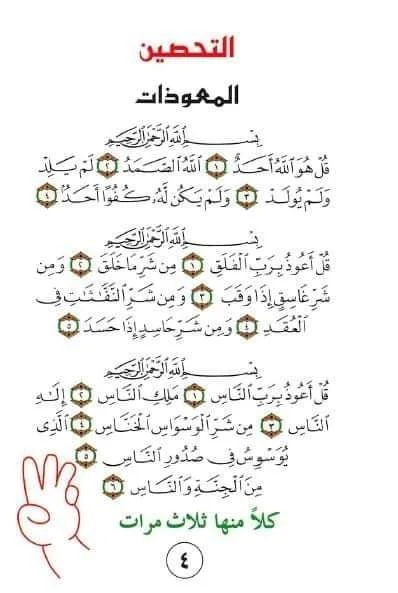 التحصين
المعوذات
بِسْمِ اللَّهِ الرَّحْمَٰنِ الرَّحِيمِ
قُلْ هُوَ اللَّهُ أَحَدٌ ١ اللَّهُ الصَّمَدُ ٢ لَمْ يَلِدْ
وَلَمْ يُولَدْ ٣ وَلَمْ يَكُن لَّهُ كُفُوًا أَحَدٌ ٤
بِسْمِ اللَّهِ الرَّحْمَٰنِ الرَّحِيمِ
قُلْ أَعُوذُ بِرَبِّ الْفَلَقِ ١ مِن شَرِّ مَا خَلَقَ ٢ وَمِن
شَرِّ غَاسِقٍ إِذَا وَقَبَ ٣ وَمِن شَرِّ النَّفَّاثَاتِ فِي
الْعُقَدِ ٤ وَمِن شَرِّ حَاسِدٍ إِذَا حَسَدَ ٥
بِسْمِ اللَّهِ الرَّحْمَٰنِ الرَّحِيمِ
قُلْ أَعُوذُ بِرَبِّ النَّاسِ ١ مَلِكِ النَّاسِ ٢ إِلَٰهِ
النَّاسِ ٣ مِن شَرِّ الْوَسْوَاسِ الْخَنَّاسِ ٤ الَّذِي
يُوَسْوِسُ فِي صُدُورِ النَّاسِ ٥
مِنَ الْجِنَّةِ وَالنَّاسِ ٦
كلاً منها ثلاث مرات
٤